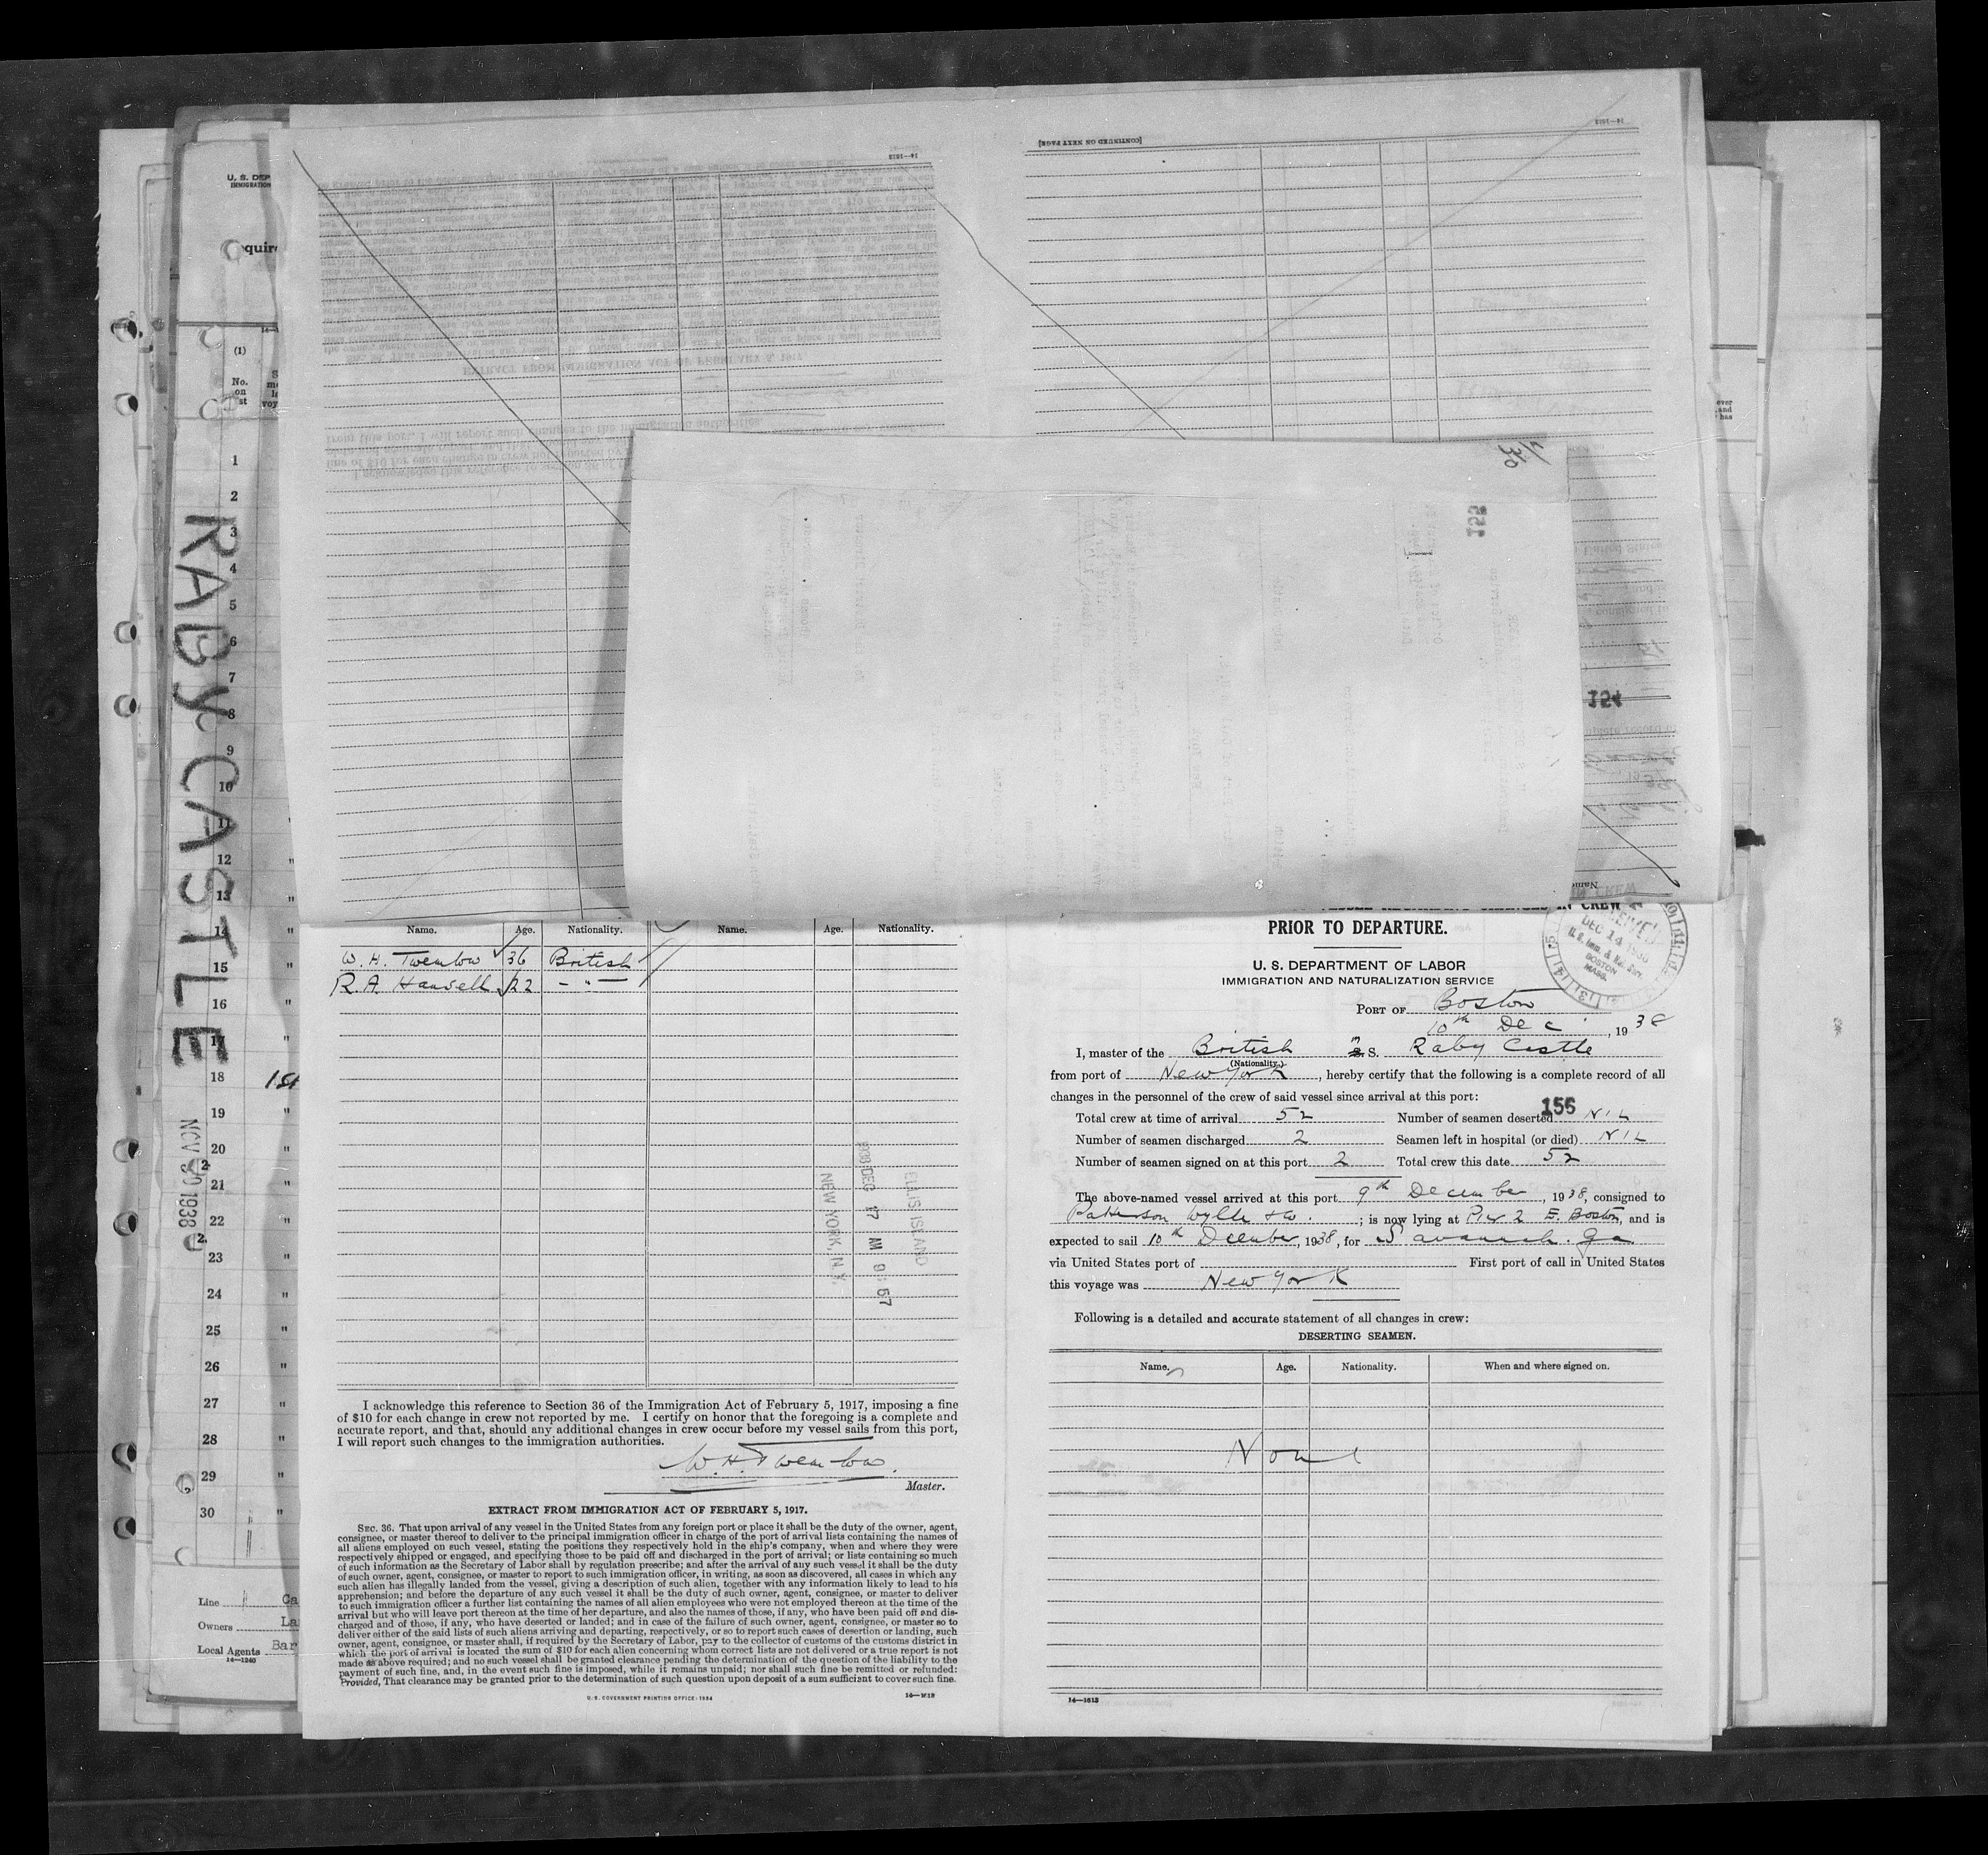 U. S. DEP
IMMIGRATION
quire
(1)
No.
on
st
1
2
3
4
5
6
7
8
9
10
11
12
13
14
15
16
17
18
19
20
21
22
23
24
25
26
27
28
29
30
RABY CASTLE
NOV 30 1938
Line
Owners
Local Agents Bar
14—1240
14—1613
[CONTINUED ON NEXT PAGE]
14—1613
155
124
Name. Age. Nationality. Name. Age. Nationality.
W. H. Twemlow 36 British
R. A. Hansell 22 - " -
ELLIS ISLAND
1938 DEC 17 AM 9:57
NEW YORK, N.Y.
I acknowledge this reference to Section 36 of the Immigration Act of February 5, 1917, imposing a fine
of $10 for each change in crew not reported by me. I certify on honor that the foregoing is a complete and
accurate report, and that, should any additional changes in crew occur before my vessel sails from this port,
I will report such changes to the immigration authorities.
W. H. Twemlow.
Master.
EXTRACT FROM IMMIGRATION ACT OF FEBRUARY 5, 1917.
SEC. 36. That upon arrival of any vessel in the United States from any foreign port or place it shall be the duty of the owner, agent,
consignee, or master thereof to deliver to the principal immigration officer in charge of the port of arrival lists containing the names of
all aliens employed on such vessel, stating the positions they respectively hold in the ship's company, when and where they were
respectively shipped or engaged, and specifying those to be paid off and discharged in the port of arrival; or lists containing so much
of such information as the Secretary of Labor shall by regulation prescribe; and after the arrival of any such vessel it shall be the duty
of such owner, agent, consignee, or master to report to such immigration officer, in writing, as soon as discovered, all cases in which any
such alien has illegally landed from the vessel, giving a description of such alien, together with any information likely to lead to his
apprehension; and before the departure of any such vessel it shall be the duty of such owner, agent, consignee, or master to deliver
to such immigration officer a further list containing the names of all alien employees who were not employed thereon at the time of the
arrival but who will leave port thereon at the time of her departure, and also the names of those, if any, who have been paid off and dis-
charged and of those, if any, who have deserted or landed; and in case of the failure of such owner, agent, consignee, or master so to
deliver either of the said lists of such aliens arriving and departing, respectively, or so to report such cases of desertion or landing, such
owner, agent, consignee, or master shall, if required by the Secretary of Labor, pay to the collector of customs of the customs district in
which the port of arrival is located the sum of $10 for each alien concerning whom correct lists are not delivered or a true report is not
made as above required; and no such vessel shall be granted clearance pending the determination of the question of the liability to the
payment of such fine, and, in the event such fine is imposed, while it remains unpaid; nor shall such fine be remitted or refunded:
Provided, That clearance may be granted prior to the determination of such question upon deposit of a sum sufficient to cover such fine.
U. S. GOVERNMENT PRINTING OFFICE: 1934
PRIOR TO DEPARTURE.
U. S. DEPARTMENT OF LABOR
IMMIGRATION AND NATURALIZATION SERVICE
DEC 14 1938
BOSTON
MASS.
PORT OF Boston
10th Dec, 1938
I, master of the British S. Raby Castle
(Nationality.)
from port of New York, hereby certify that the following is a complete record of all
changes in the personnel of the crew of said vessel since arrival at this port:
Total crew at time of arrival 52 Number of seamen deserted NIL
155
Number of seamen discharged 2 Seamen left in hospital (or died) NIL
Number of seamen signed on at this port 2 Total crew this date 52
The above-named vessel arrived at this port 9th December, 1938, consigned to
Patterson Wylde & Co.; is now lying at Pier 2 E. Boston, and is
expected to sail 10th December, 1938, for Savannah. Ga
via United States port of First port of call in United States
this voyage was New York
Following is a detailed and accurate statement of all changes in crew:
DESERTING SEAMEN.
Name. Age. Nationality. When and where signed on.
None
14—1613